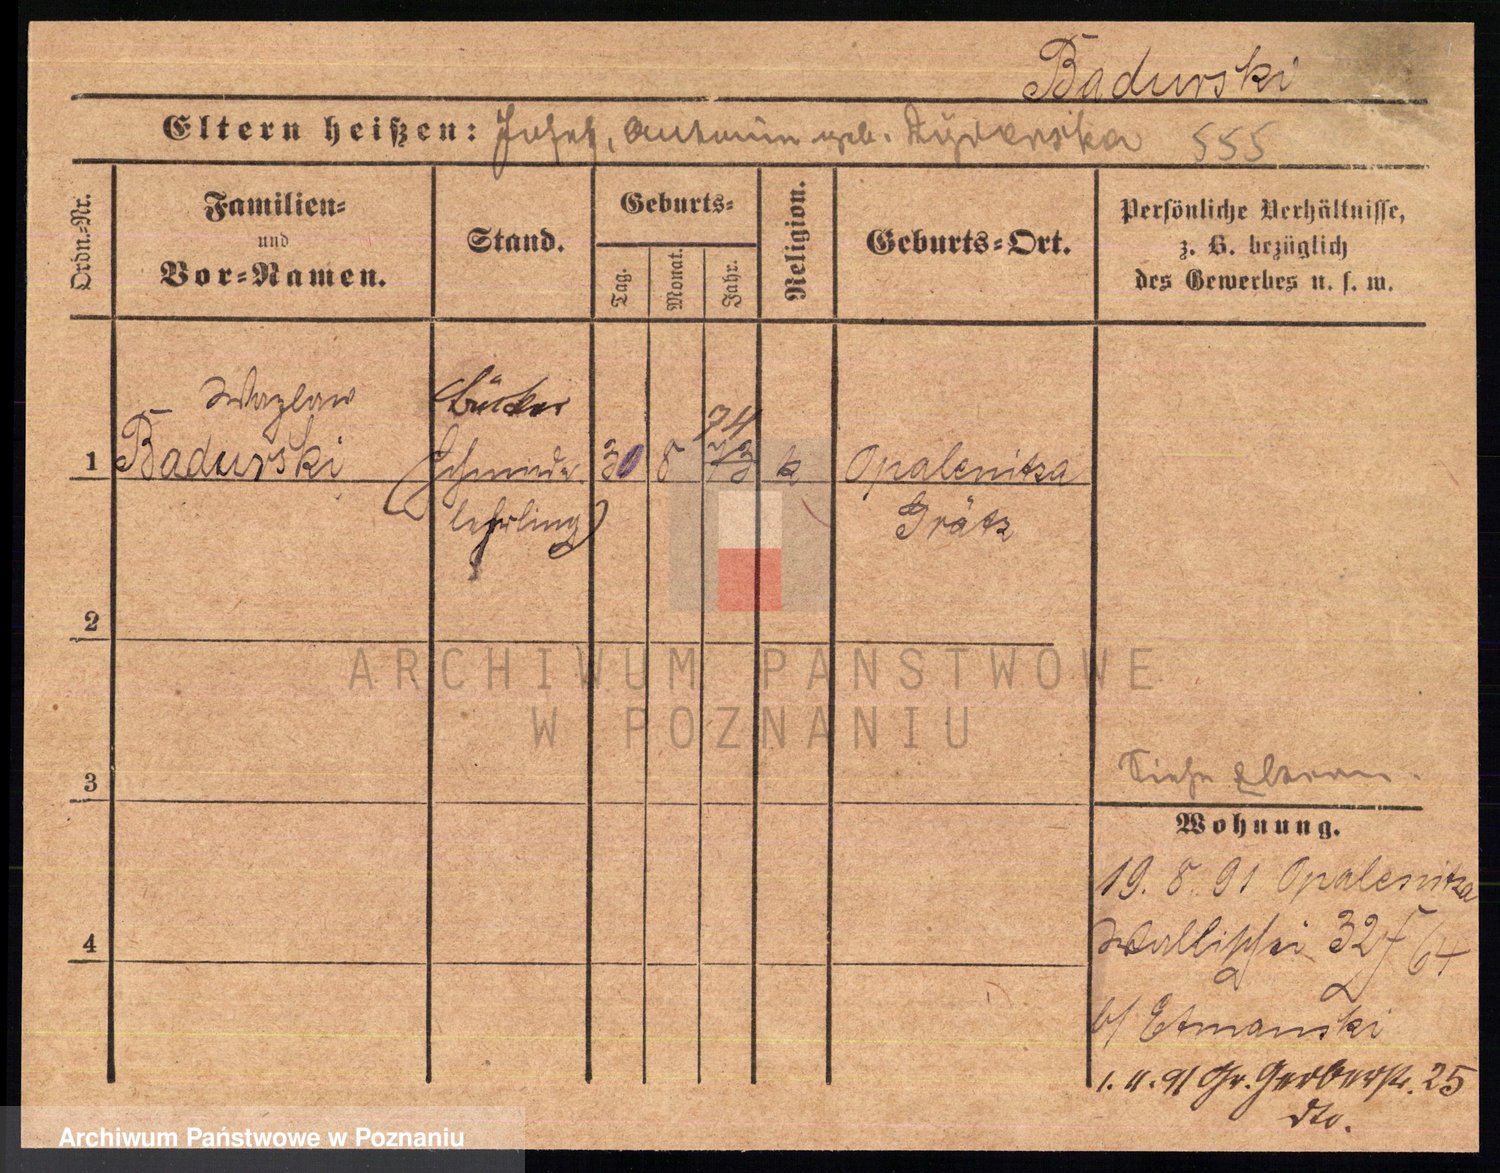 Badurski
Eltern heißen: Josef, Antonin geb. 555
Ordn.-Nr.
Familien-
und
Vor-Namen.
Stand.
Geburts-
Tag.
Monat.
Jahr.
Religion.
Geburts-Ort.
Persönliche Verhältnisse,
z. B. bezüglich
des Gewerbes u. s. w.
Wazlaw
Bäcker
74
1 Badurski (Schmiede 30 8 73 k Opalenitza
lehrling) Grätz
2
ARCHIWUM PAŃSTWOWE
W POZNANIU
3
Siehe
Wohnung.
19. 8. 91 Opalenitza
4
Wallischei 32 64
b/ Etmanski
1. 11. 91 Gr. Gerberstr. 25
dto.
Archiwum Państwowe w Poznaniu